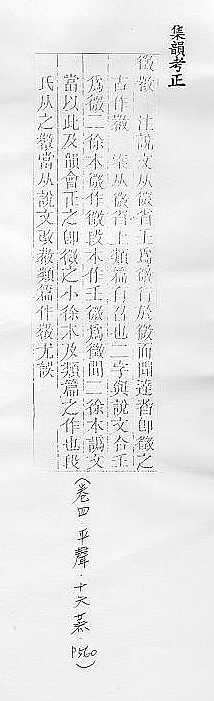 集韻考正
徵 注說文从微省壬爲徵行於微而聞達者卽徵之
古作 案从微省上類篇有召也二字與說文合壬
爲徵二徐本徵作徵段本作壬徵爲徵間二徐本譌文
當以此及韻會正之卽徵之小徐本及類篇之作也段
氏从之 當从說文改 類篇作 尤誤
(卷四·平聲·十六蒸 P560)